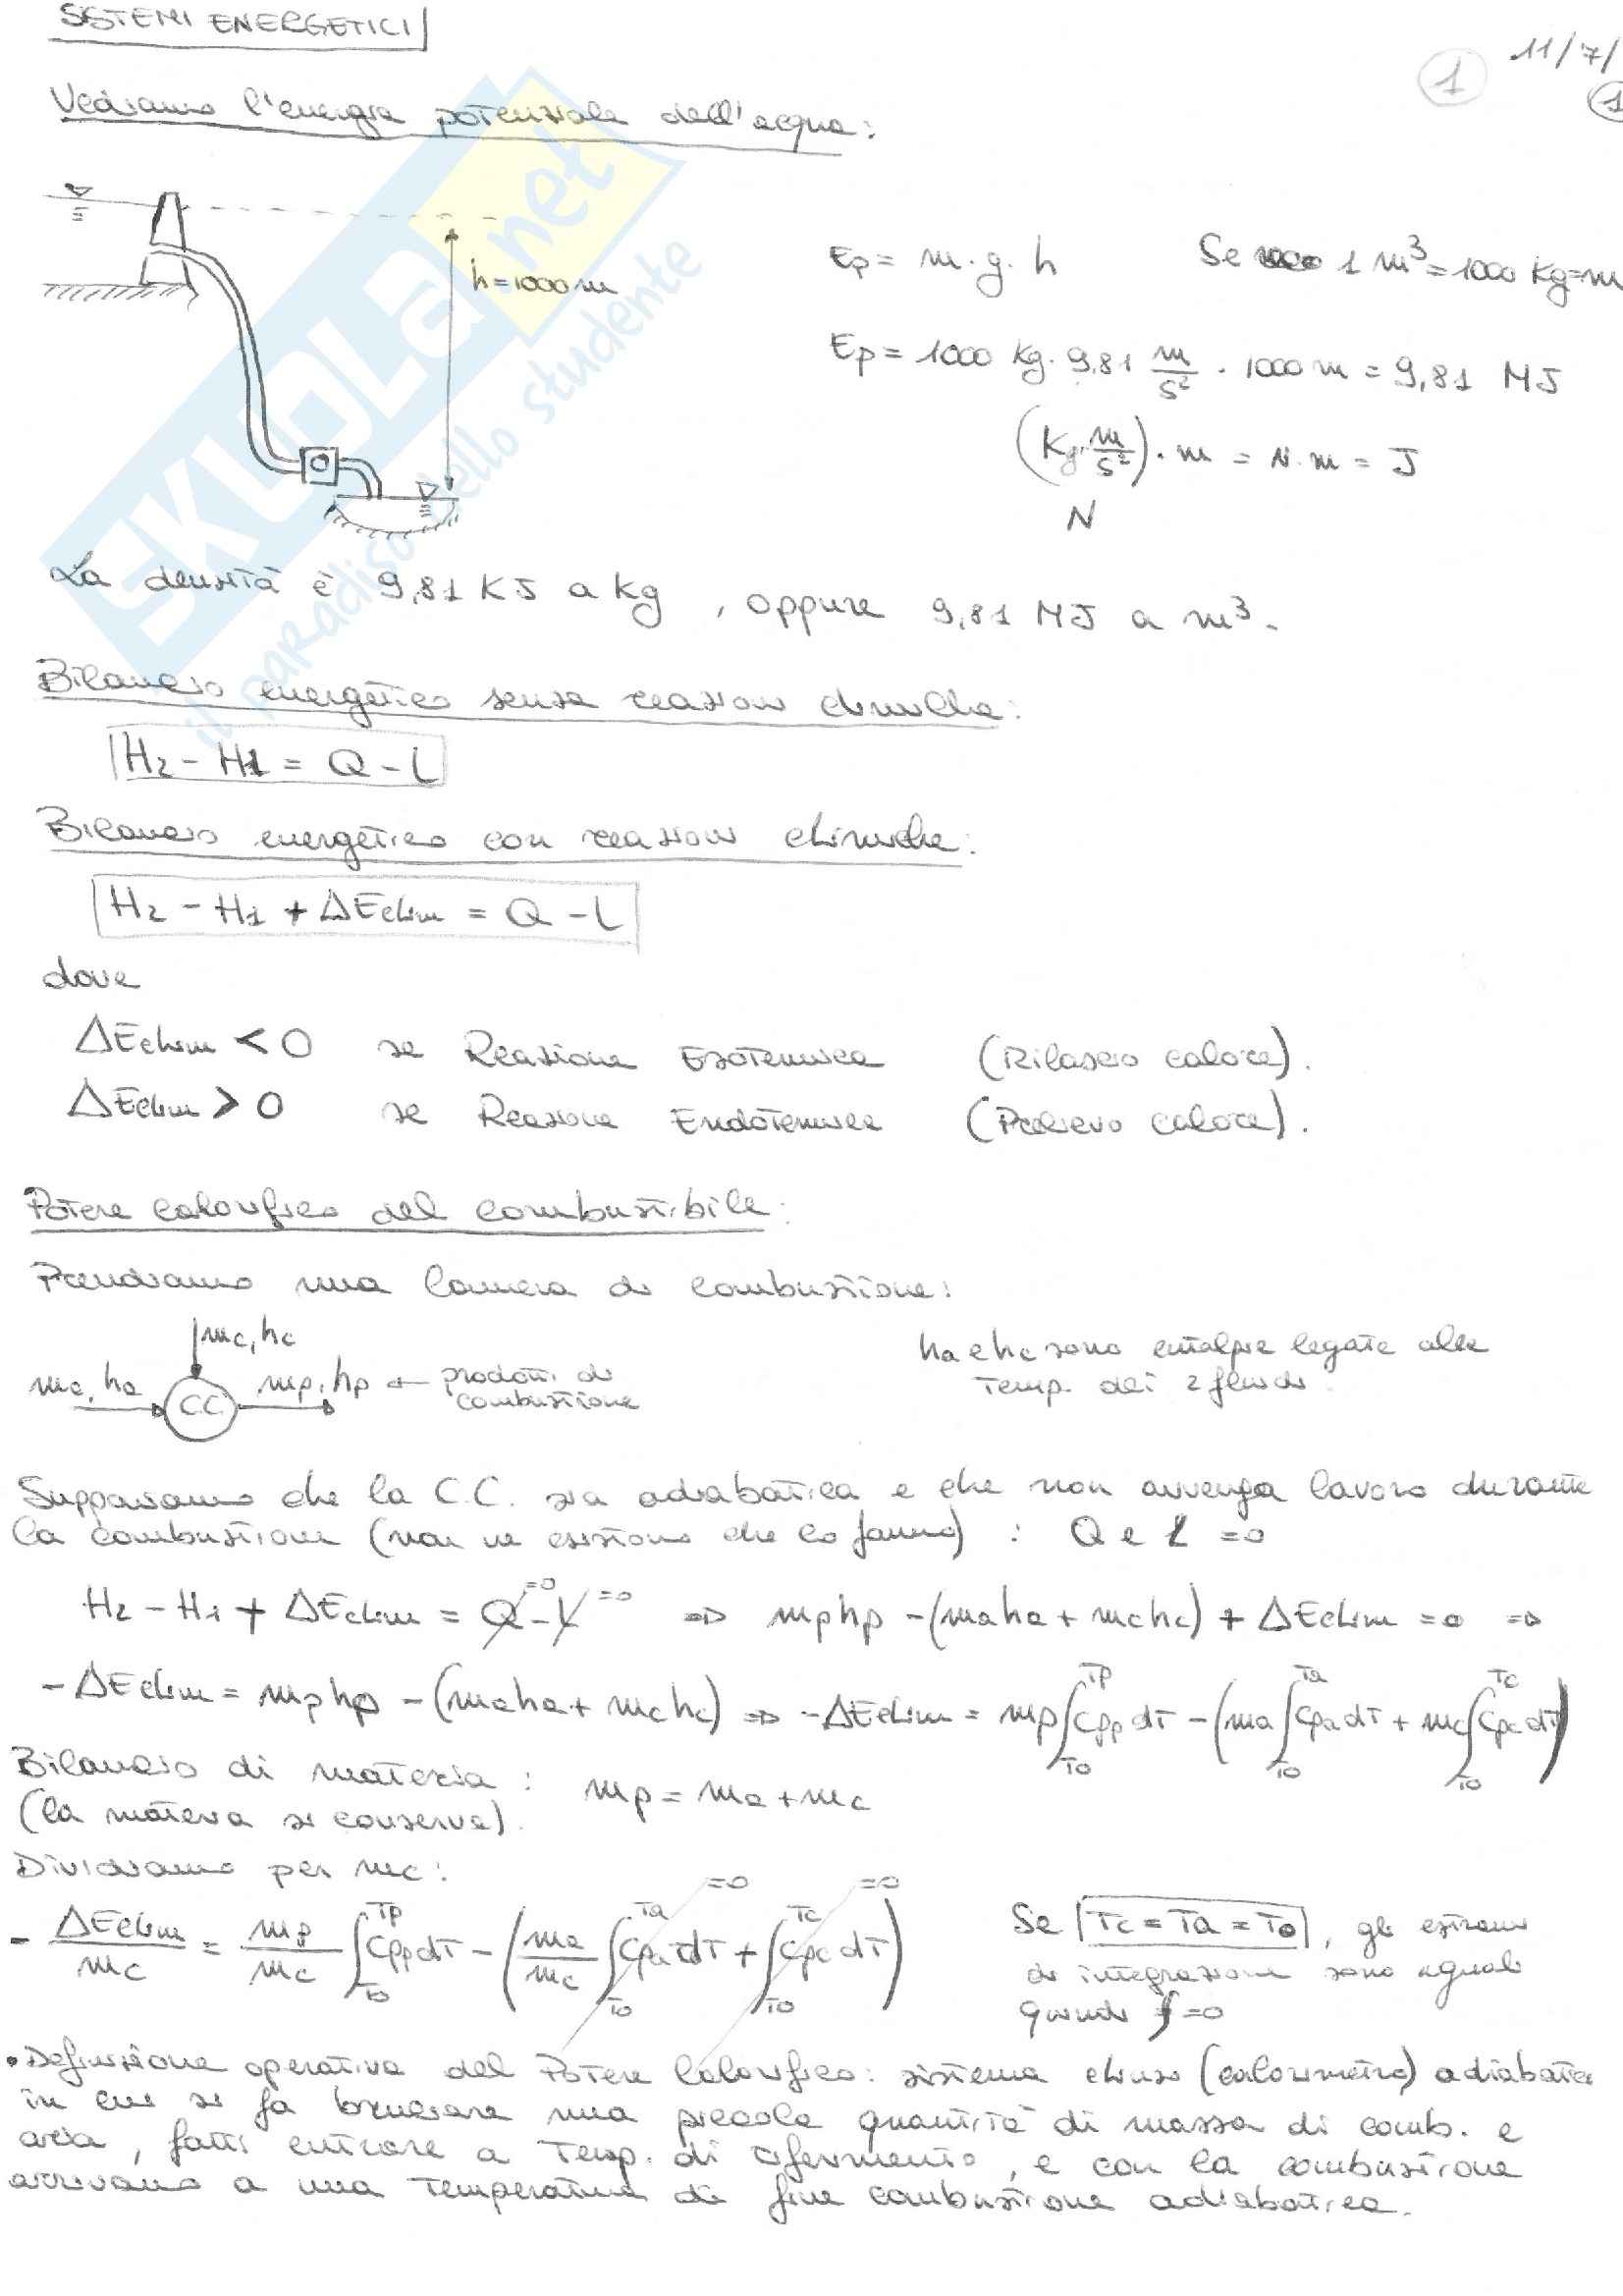 SISTEMI ENERGETICI
11/7/
1
1
Vediamo l'energia potenziale dell'acqua:
h=1000 m
Ep = m·g·h Se 1 m³=1000 Kg=m
Ep = 1000 Kg·9,81 m/s² · 1000 m = 9,81 MJ
(Kg·m/s²)·m = N·m = J
N
La densità è 9,81 KJ a Kg, oppure 9,81 MJ a m³.
Bilancio energetico senza reazioni chimiche:
H2 - H1 = Q - L
Bilancio energetico con reazioni chimiche:
H2 - H1 + ΔEchim = Q - L
dove
ΔEchim < 0 se Reazione Esotermica (Rilascio calore).
ΔEchim > 0 se Reazione Endotermica (Prelievo calore).
Potere calorifico del combustibile:
Prendiamo una Camera di combustione:
mc, hc
ma, ha
C.C.
mp, hp ← prodotti di
combustione
ha e hc sono entalpie legate alle
Temp. dei 2 fluidi.
Supponiamo che la C.C. sia adiabatica e che non avvenga lavoro durante
la combustione (non ne esistono che lo fanno) : Q e L =0
H2 - H1 + ΔEchim = Q=0 - L=0 ⇒ mphp - (maha + mchc) + ΔEchim = 0 ⇒
-ΔEchim = mphp - (maha + mchc) ⇒ -ΔEchim = mp∫To^Tp Cpp dT - (ma∫To^Ta Cpa dT + mc∫To^Tc Cpc dT)
Bilancio di materia : mp = ma + mc
(la materia si conserva).
Dividiamo per mc:
- ΔEchim/mc = mp/mc ∫To^Tp Cpp dT - (ma/mc ∫To^Ta Cpa dT + ∫To^Tc Cpc dT) =0 =0
Se Tc = Ta = To, gli estremi
di integrazione sono uguali
quindi ∫=0
•Definizione operativa del Potere Calorifico: sistema chiuso (calorimetro) adiabatico
in cui si fa bruciare una piccola quantità di massa di comb. e
aria, fatti entrare a Temp. di riferimento, e con la combustione
arrivano a una temperatura di fine combustione adiabatica.
SKUOLA.net
il paradiso dello studente